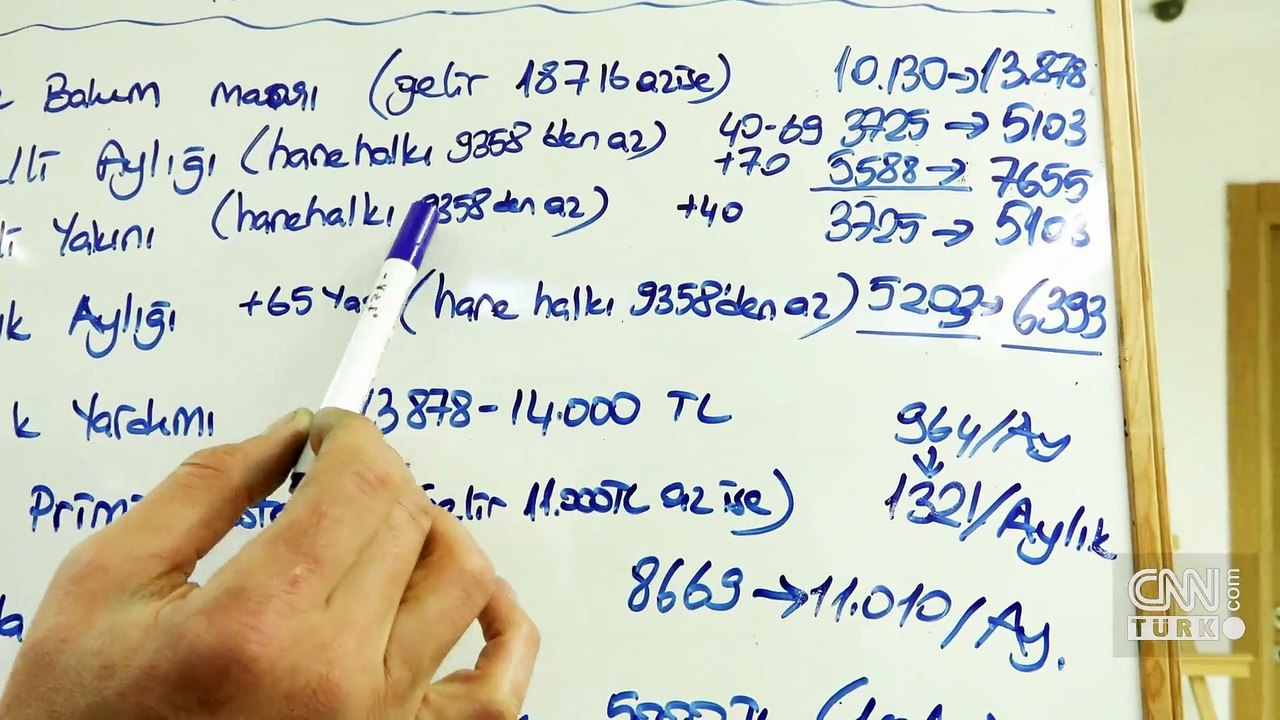 Bakım maaşı (gelir 18716 az ise) 10.130→13.878
Aylığı (hane halkı 9358'den az) 40-69 3725 → 5103
+70 5588 → 7655
Yakını (hane halkı 9358 den az) +40 3725 → 5103
Aylığı +65 Yaş (hane halkı 9358'den az) 5203→ 6393
Yardımı 13878-14.000 TL 964/Ay
11.000TL az ise) 1321/Aylık
8669 →11.010/Ay.
CNN
TÜRK
.com